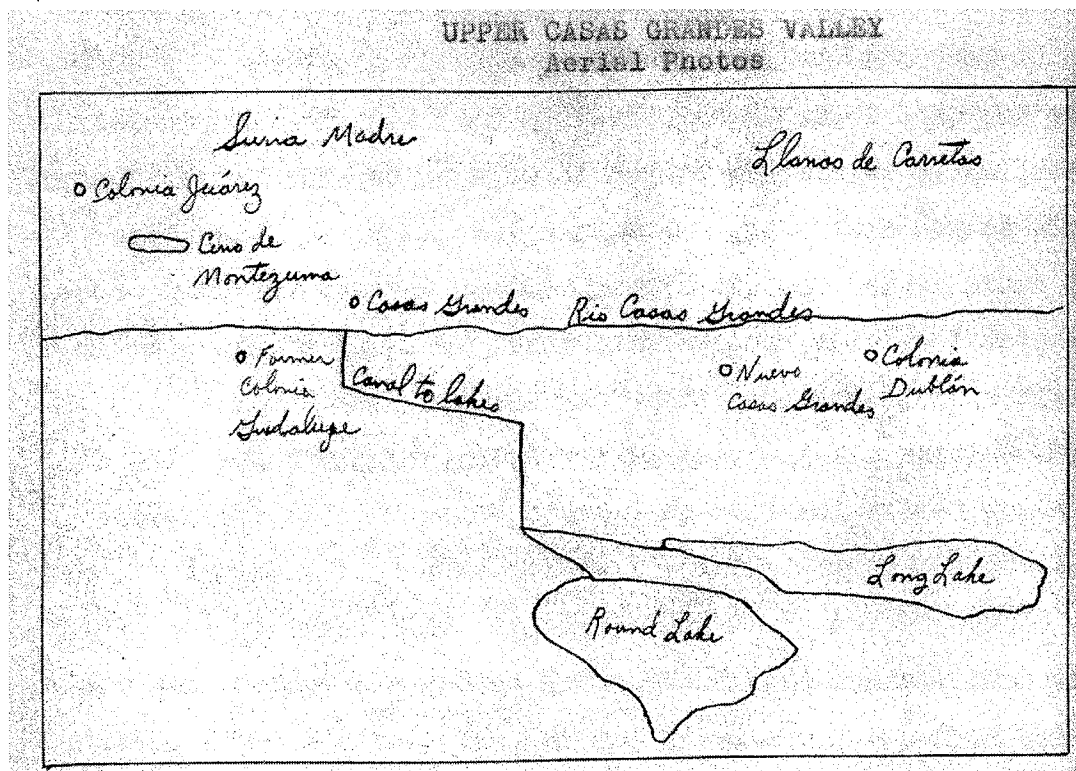 UPPER CASAS GRANDES VALLEY
Aerial Photos
Sierra Madre
Llanos de Carretas
Colonia Juárez
Cerro de
Montezuma
Casas Grandes
Rio Casas Grandes
Former
Colonia
Guadalupe
Canal to lakes
Nuevo
Casas Grandes
Colonia
Dublán
Long Lake
Round Lake